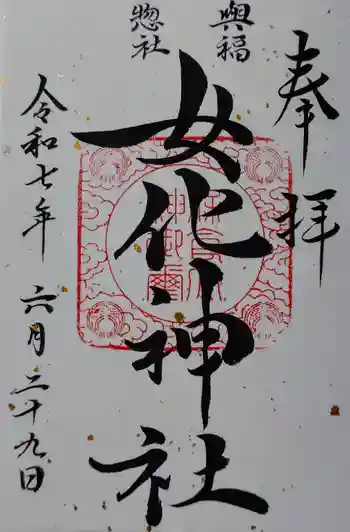 奉拝
與福
惣社
女化神社
令和七年 六月 二十九日